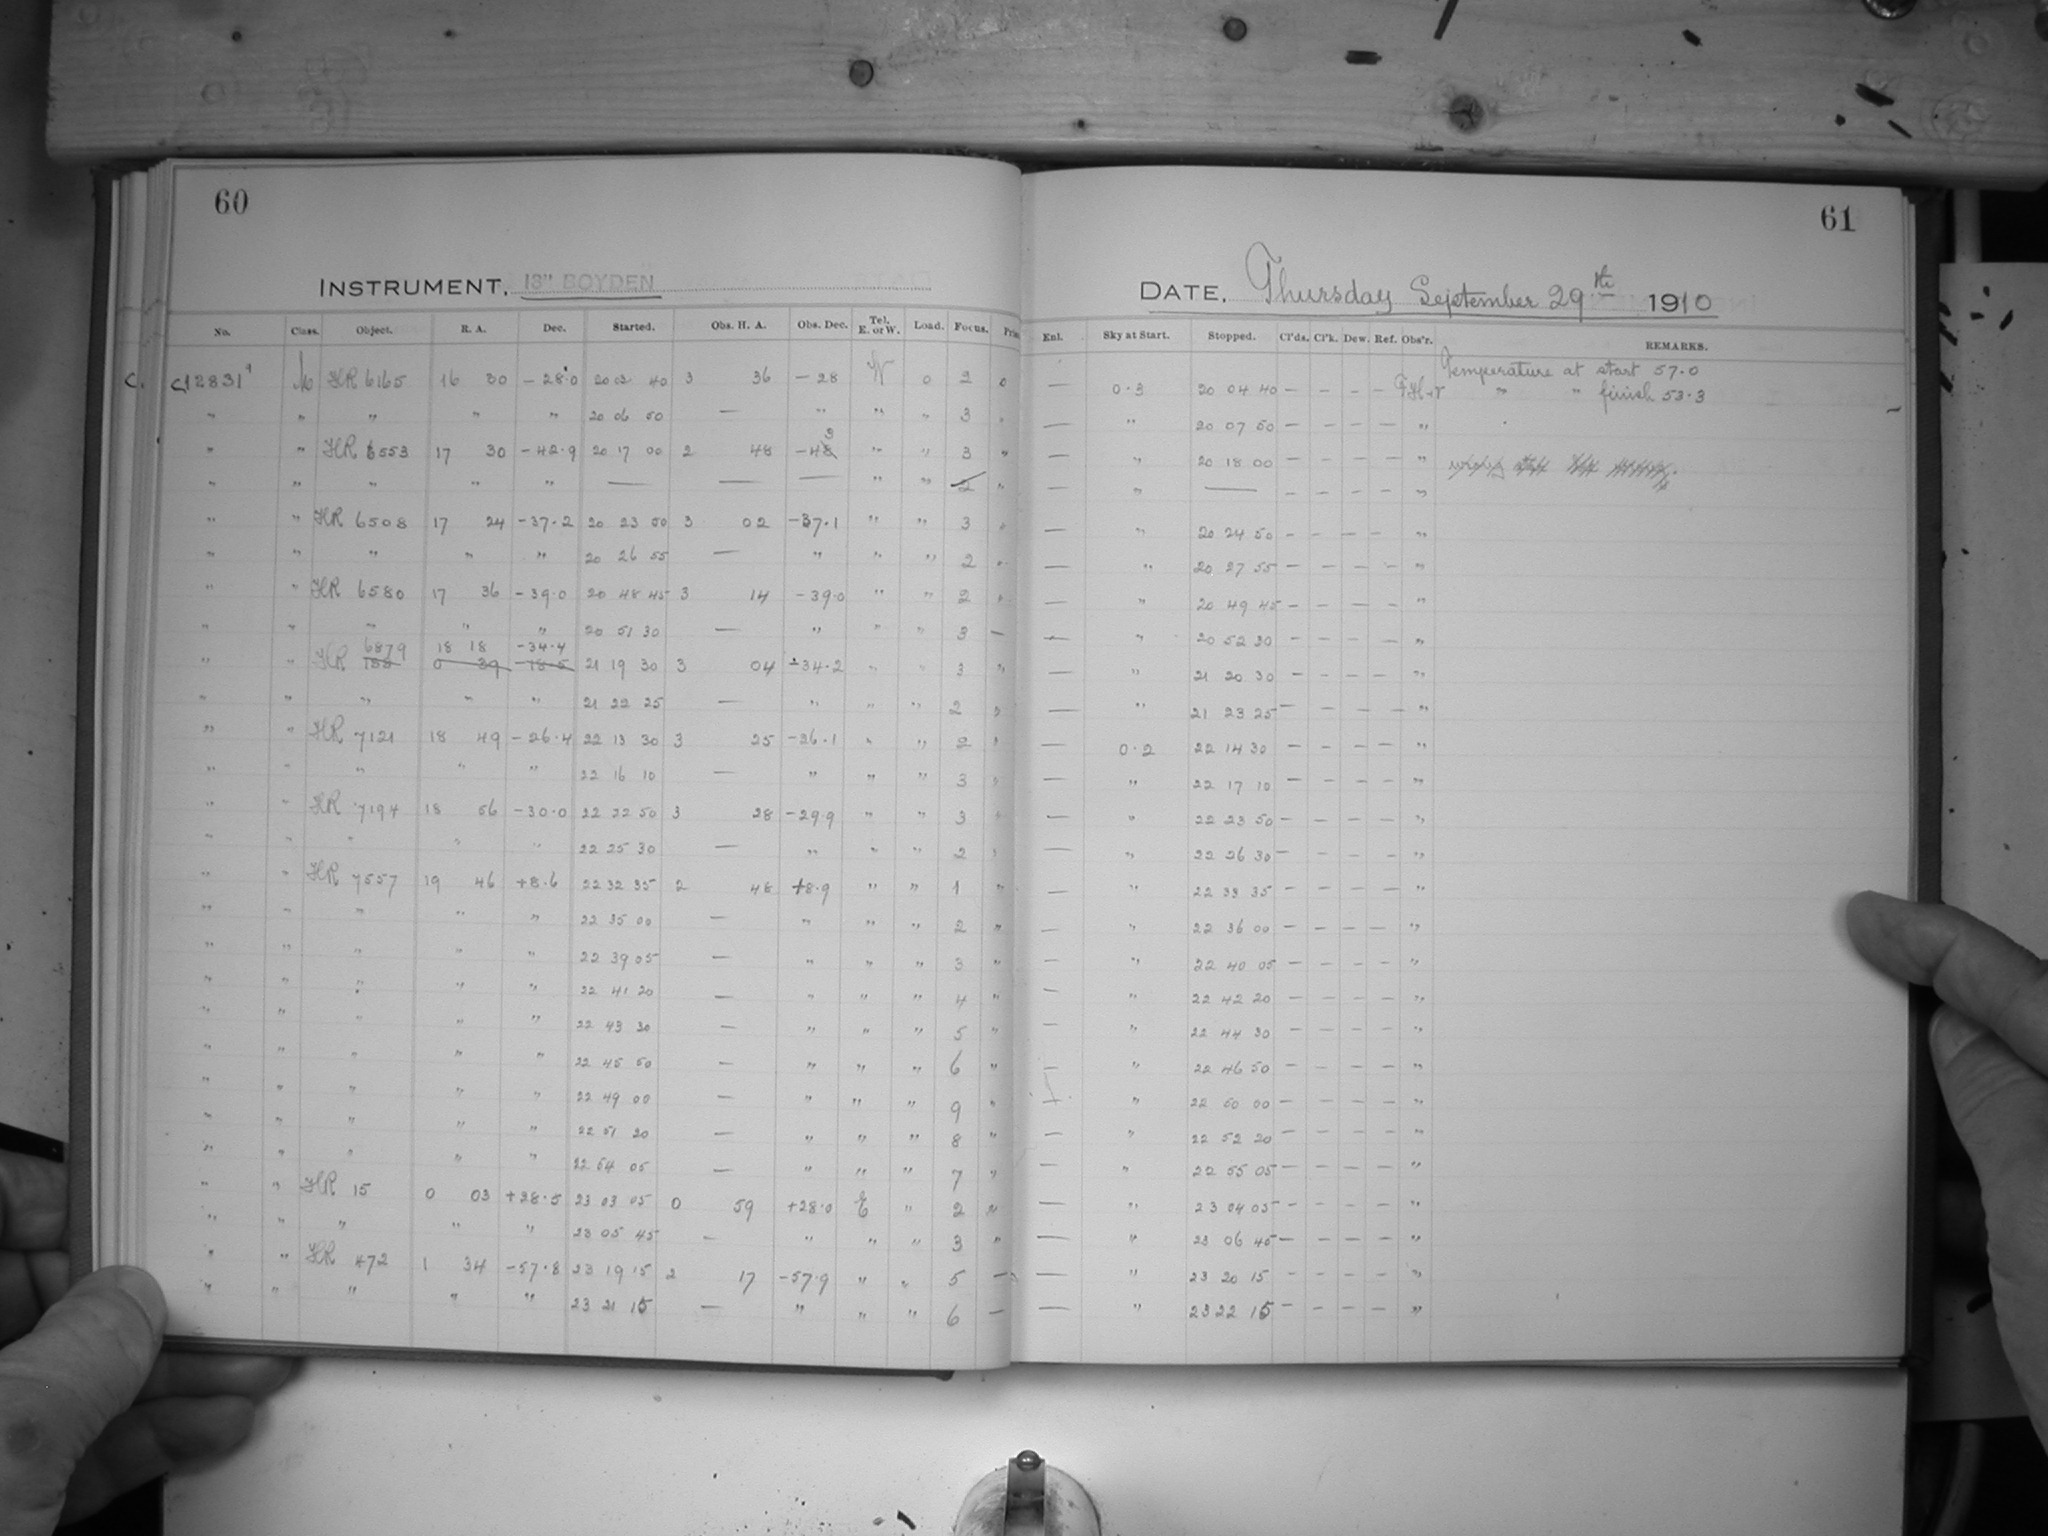 60
INSTRUMENT, 13" BOYDEN
No. Class. Object. R. A. Dec. Started. Obs. H. A. Obs. Dec. Tel. E. or W. Load. Focus. Pris
C. C12831 HR 6165 16 30 -28.0 20 03 40 3 36 -28 W 0 2 0
" " " " " 20 06 50 — " " " 3 "
" " HR 6553 17 30 -42.9 20 17 00 2 48 -43 " " 3 "
" " " " " — — — " " 2 "
" " HR 6508 17 24 -37.2 20 23 50 3 02 -37.1 " " 3 "
" " " " " 20 26 55 — " " " 2 "
" " HR 6580 17 36 -39.0 20 48 45 3 14 -39.0 " " 2 "
" " " " " 20 51 30 — " " " 3 —
6879 18 18 -34.4
" " HR 188 0 39 -18.5 21 19 30 3 04 -34.2 " " 3 "
" " " " " 21 22 25 — " " " 2 "
" " HR 7121 18 49 -26.4 22 13 30 3 25 -26.1 " " 2 "
" " " " " 22 16 10 — " " " 3 "
" " HR 7194 18 56 -30.0 22 22 50 3 28 -29.9 " " 3 "
" " " " " 22 25 30 — " " " 2 "
" " HR 7557 19 46 +8.6 22 32 35 2 48 +8.9 " " 1 "
" " " " " 22 35 00 — " " " 2 "
" " " " " 22 39 05 — " " " 3 "
" " " " " 22 41 20 — " " " 4 "
" " " " " 22 43 30 — " " " 5 "
" " " " " 22 45 50 — " " " 6 "
" " " " " 22 49 00 — " " " 9 "
" " " " " 22 51 20 — " " " 8 "
" " " " " 22 54 05 — " " " 7 "
" " HR 15 0 03 +28.5 23 03 05 0 59 +28.0 E " 2 "
" " " " " 23 05 45 — " " " 3 "
" " HR 472 1 34 -57.8 23 19 15 2 17 -57.9 " " 5 —
" " " " " 23 21 15 — " " " 6 —
61
DATE, Thursday September 29th 1910
Enl. Sky at Start. Stopped. Cl'ds. Cl'k. Dew. Ref. Obs'r. REMARKS.
Temperature at start 57.0
— 0.3 20 04 40 — — — — " " finish 53.3
— " 20 07 50 — — — — "
— " 20 18 00 — — — — "
— " — — — — — "
— " 20 24 50 — — — — "
— " 20 27 55 — — — — "
— " 20 49 45 — — — — "
— " 20 52 30 — — — — "
— " 21 20 30 — — — — "
— " 21 23 25 — — — — "
— 0.2 22 14 30 — — — — "
— " 22 17 10 — — — — "
— " 22 23 50 — — — — "
— " 22 26 30 — — — — "
— " 22 33 35 — — — — "
— " 22 36 00 — — — — "
— " 22 40 05 — — — — "
— " 22 42 20 — — — — "
— " 22 44 30 — — — — "
— " 22 46 50 — — — — "
— " 22 50 00 — — — — "
— " 22 52 20 — — — — "
— " 22 55 05 — — — — "
— " 23 04 05 — — — — "
— " 23 06 45 — — — — "
— " 23 20 15 — — — — "
— " 23 22 15 — — — — "